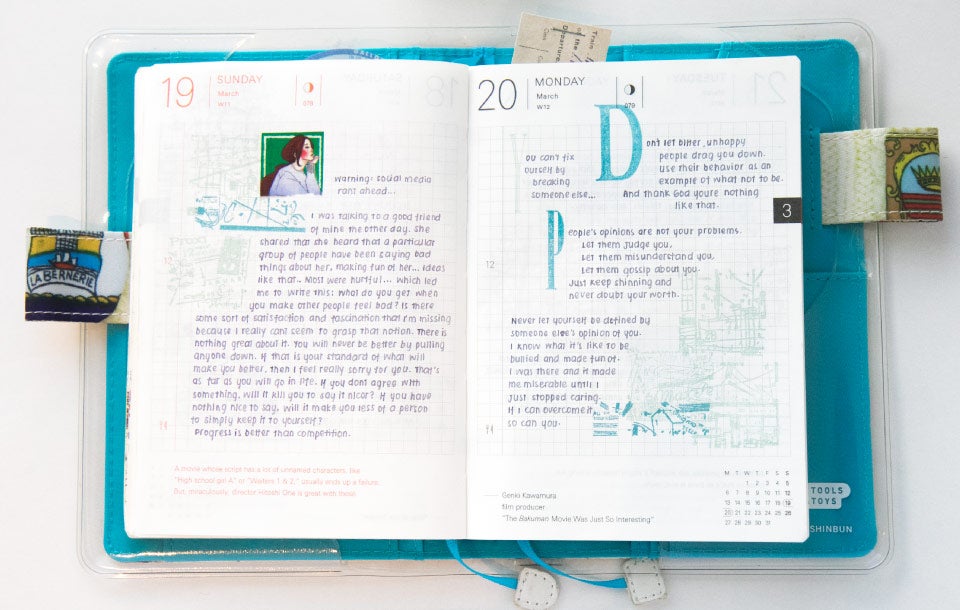 19 SUNDAY
March
W11
078
warning: social media
rant ahead...
I was talking to a good friend
of mine the other day. She
shared that she heard that a particular
group of people have been saying bad
things about her, making fun of her... ideas
like that. Most were hurtful... which led
me to write this: what do you get when
you make other people feel bad? Is there
some sort of satisfaction and fascination that I'm missing
because I really cant seem to grasp that notion. There is
nothing great about it. You will never be better by pulling
anyone down. If that is your standard of what will
make you better, then I feel really sorry for you. That's
as far as you will go in life. If you dont agree with
something, will it kill you to say it nicer? If you have
nothing nice to say, will it make you less of a person
to simply keep it to yourself?
Progress is better than competition.
A movie whose script has a lot of unnamed characters, like
"High school girl A" or "Waiters 1 & 2," usually ends up a failure.
But, miraculously, director Hitoshi One is great with those.
20 MONDAY
March
W12
079
Don't let bitter, unhappy
people drag you down.
Use their behavior as an
example of what not to be.
And thank God youre nothing
like that.
ou can't fix
ourself by
breaking
someone else...
People's opinions are not your problems.
Let them judge you,
Let them misunderstand you,
Let them gossip about you.
Just keep shinning and
never doubt your worth.
Never let yourself be defined by
someone else's opinion of you.
I know what it's like to be
bullied and made fun of.
I was there and it made
me miserable until I
just stopped caring.
If I can overcome it,
so can you.
3
12
12
Genki Kawamura
film producer
"The Bakuman Movie Was Just So Interesting"
M T W T F S S
1 2 3 4 5
6 7 8 9 10 11 12
13 14 15 16 17 18 19
20 21 22 23 24 25 26
27 28 29 30 31
LA BERNERIE
Train
of the
Departure
TOOLS
TOYS
SHINBUN